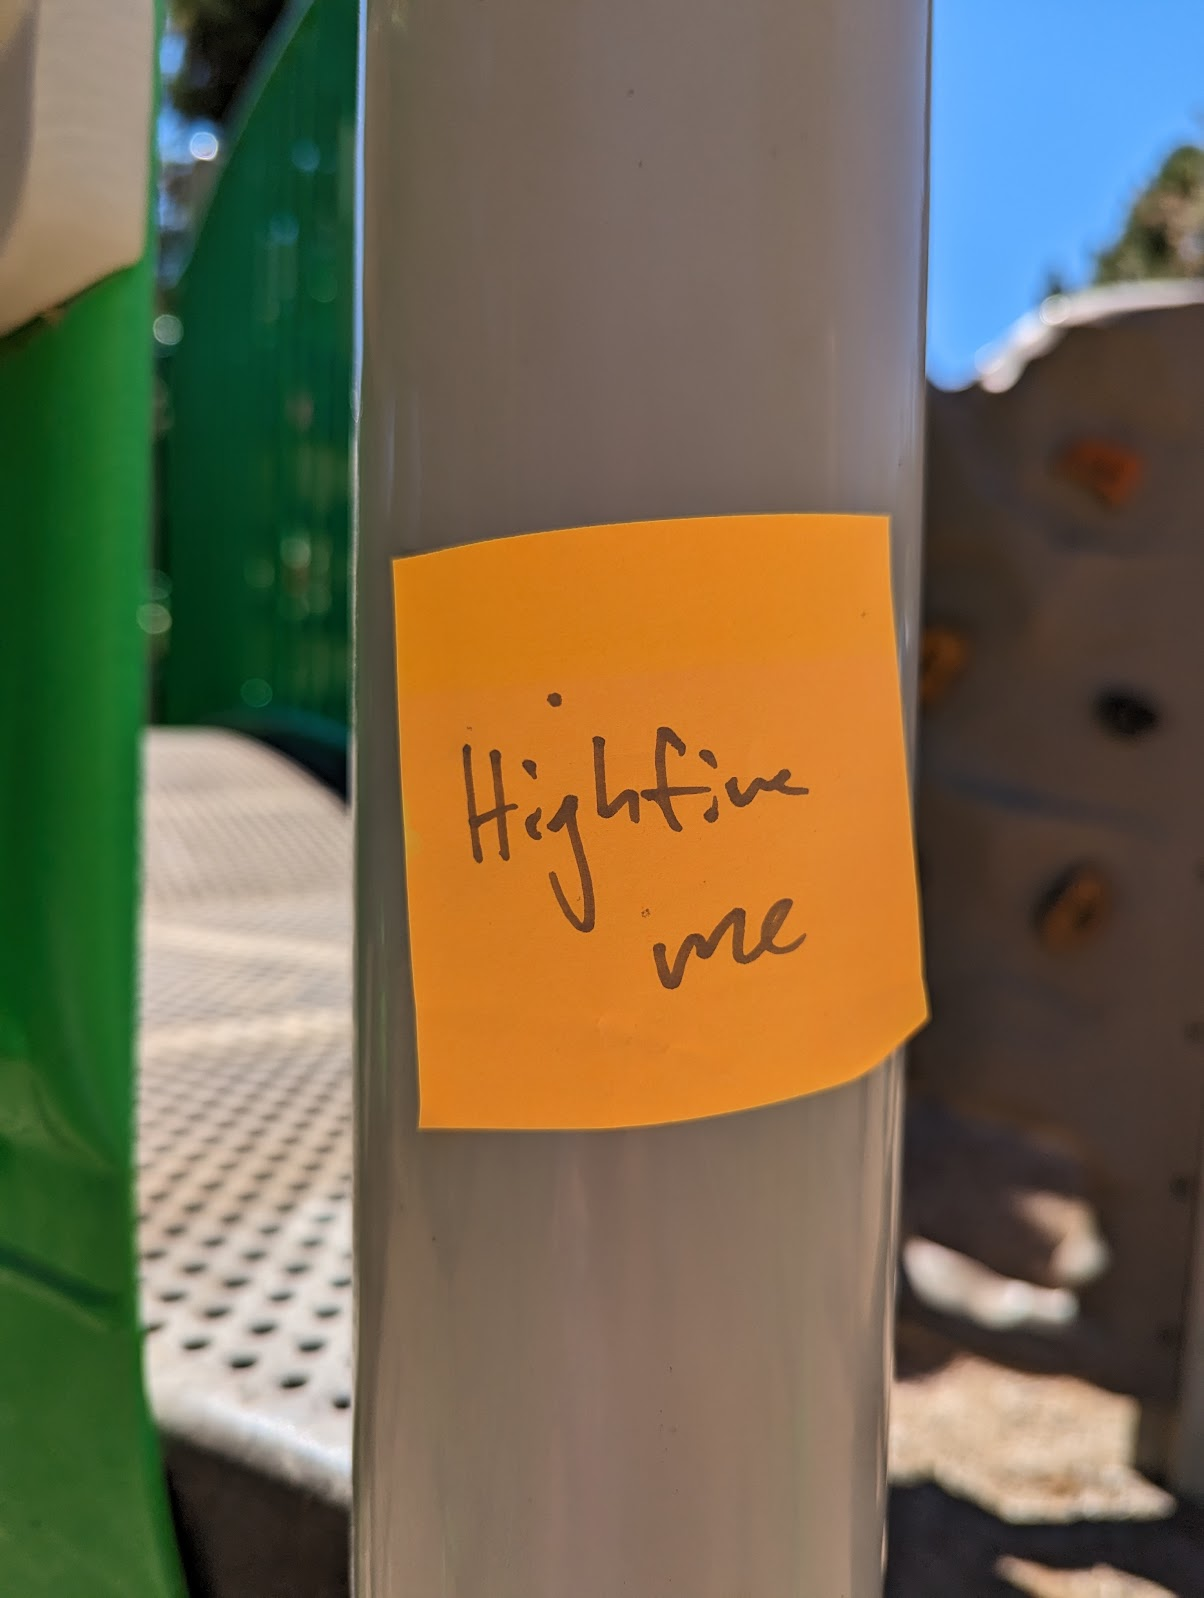 Highfive
me